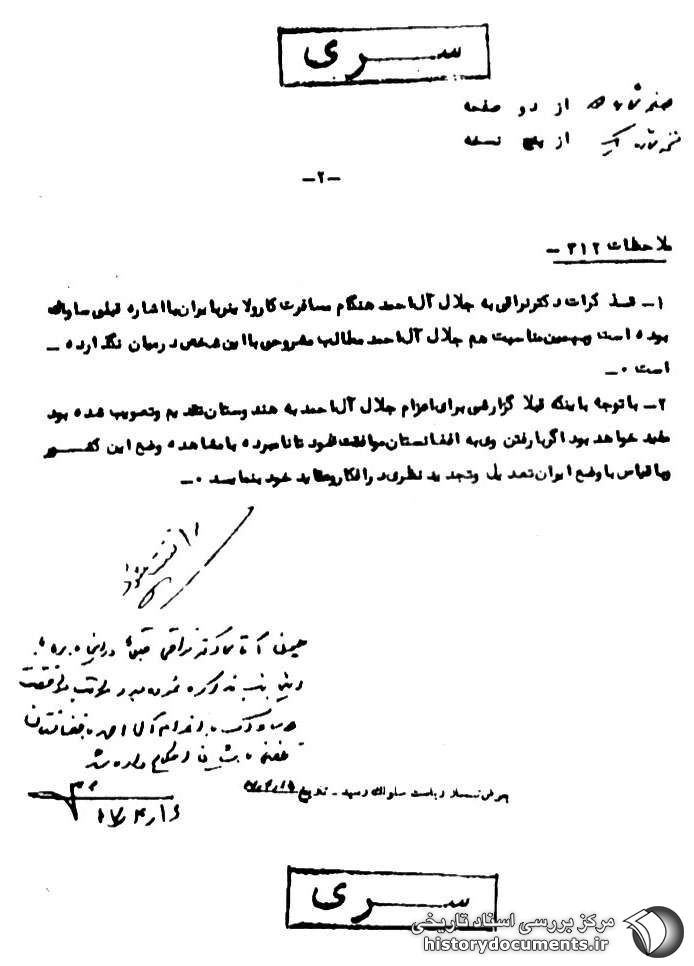 سری
صفحه شماره ۲ از دو صفحه
نسخه شماره یک از پنج نسخه
-۲-
ملاحظات ۳۱۲ -
۱- مذاکرات دکتر نراقی به جلال آل احمد هنگام مسافرت کارولا بنر بایران با اشاره قبلی ساواک
بوده است و بهمین مناسبت هم جلال آل احمد مطالب مشروحی با این شخص در میان نگذارده -
است ۰-
۲- با توجه باینکه قبلا گزارشی برای اعزام جلال آل احمد به هندوستان تقدیم و تصویب شده بود
مفید خواهد بود اگر با رفتن وی به افغانستان موافقت شود تا نامبرده با مشاهده وضع این کشور
و با قیاس با وضع ایران تعدیل و تجدید نظری در افکار و عقاید خود بنماید ۰-
چون آقای دکتر نراقی قبلا در این باره با
مذاکره نموده مراتب موافقت
ساواک با اعزام آل احمد به افغانستان
تلفنی به ایشان اعلام داده شد
۱۶/۴/۴۷
بعرض تیمسار ریاست ساواک رسید - تاریخ
سری
مرکز بررسی اسناد تاریخی
historydocuments.ir